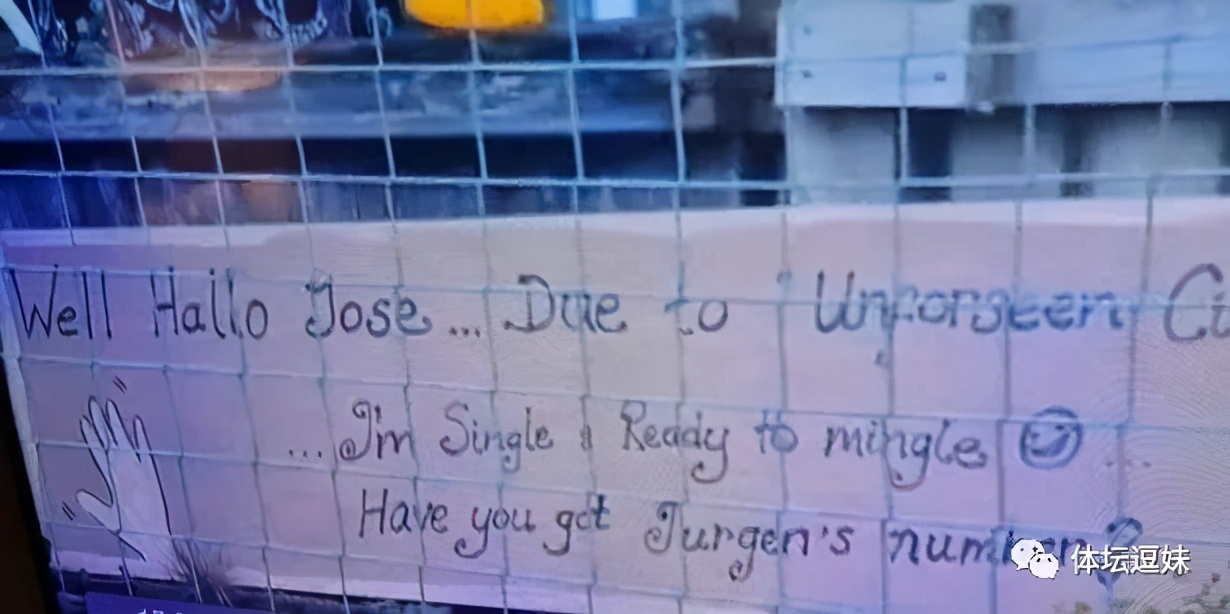 Well Hallo Jose... Due to Unforseen
...I'm Single & Ready to mingle ...
Have you got Jurgen's number?
体坛逗妹